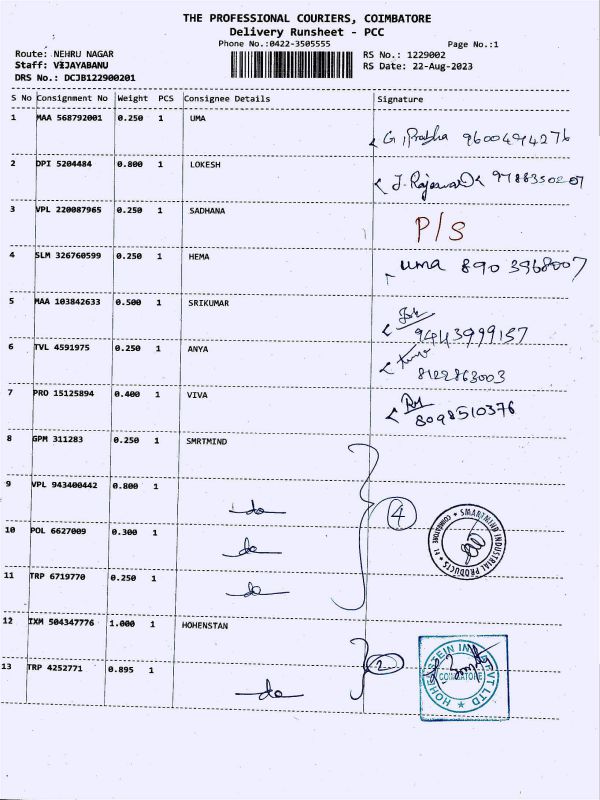 THE PROFESSIONAL COURIERS, COIMBATORE
Delivery Runsheet - PCC
Phone No.:0422-3505555 Page No.:1
Route: NEHRU NAGAR RS No.: 1229002
Staff: VIJAYABANU RS Date: 22-Aug-2023
DRS No.: DCJB122900201
S No Consignment No Weight PCS Consignee Details Signature
1 MAA 568792001 0.250 1 UMA
G. Prabha 9600494276
2 DPI 5204484 0.800 1 LOKESH
J. Rajeswari 9788350207
3 VPL 220087965 0.250 1 SADHANA P/S
4 SLM 326760599 0.250 1 HEMA uma 890 3968007
5 MAA 103842633 0.500 1 SRIKUMAR
9443999157
6 TVL 4591975 0.250 1 ANYA
8122863003
7 PRO 15125894 0.400 1 VIVA
8098510376
8 GPM 311283 0.250 1 SMRTMIND
9 VPL 943400442 0.800 1 do 4
10 POL 6627009 0.300 1 do SMARTMIND INDUSTRIAL PRODUCTS COIMBATORE
11 TRP 6719770 0.250 1 do
12 IXM 504347776 1.000 1 HOHENSTAN
13 TRP 4252771 0.895 1 do 2 HOHENSTEIN PVT LTD COIMBATORE